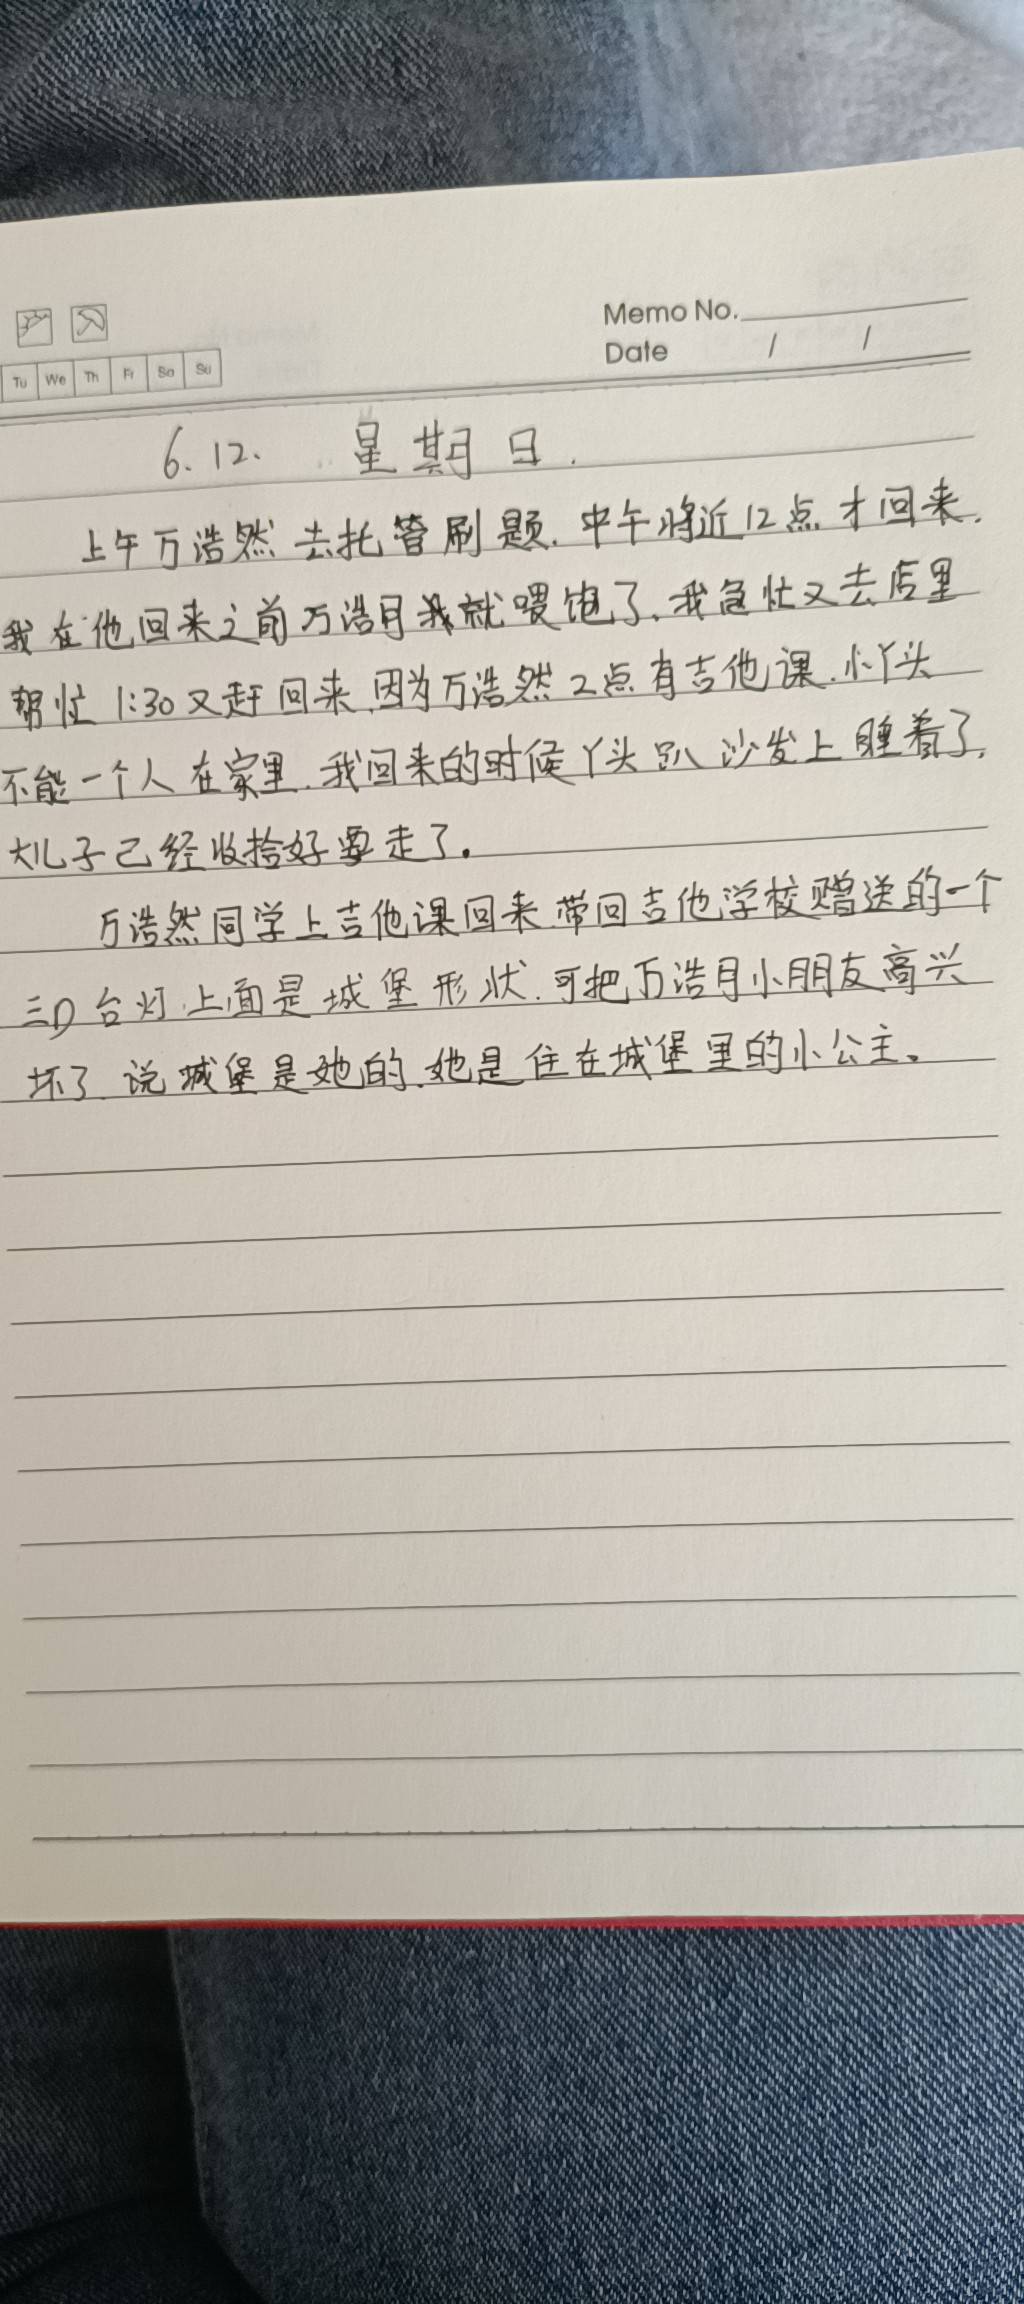 Memo No.
Date / /
Tu We Th Fr Sa Su
6.12. 星期日.
上午万浩然去托管刷题.中午将近12点才回来.
我在他回来之前万浩月我就喂饱了.我急忙又去店里
帮忙1:30又赶回来.因为万浩然2点有吉他课.小丫头
不能一个人在家里.我回来的时候丫头趴沙发上睡着了.
大儿子已经收拾好要走了。
万浩然同学上吉他课回来.带回吉他学校赠送的一个
三D台灯.上面是城堡形状.可把万浩月小朋友高兴
坏了.说城堡是她的.她是住在城堡里的小公主。